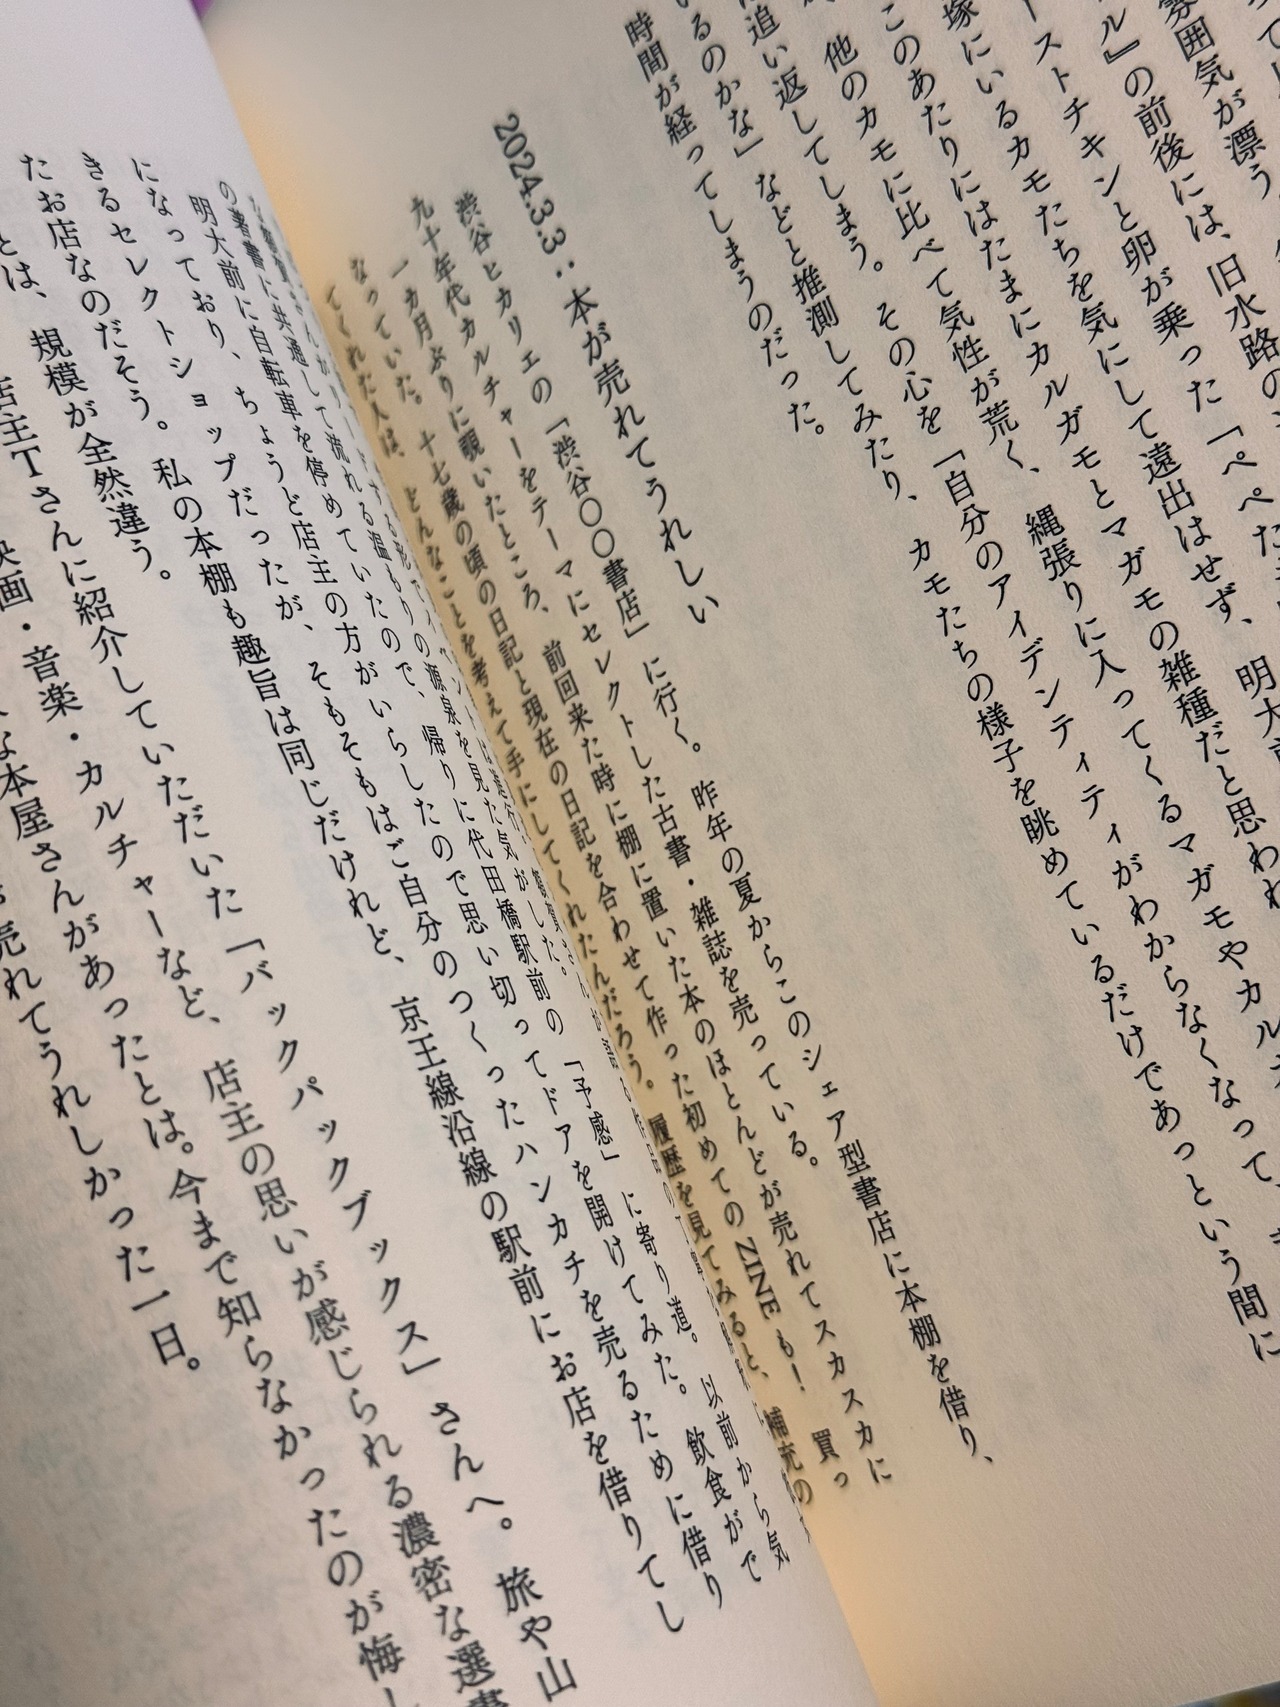 雰囲気が漂う。
ル』の前後には、旧水路の
ーストチキンと卵が乗った「ペペた
塚にいるカモたちを気にして遠出はせず、明大前
このあたりにはたまにカルガモとマガモの雑種だと思われ
、他のカモに比べて気性が荒く、縄張りに入ってくるマガモやカルガ
追い返してしまう。その心を「自分のアイデンティティがわからなくなって、
いるのかな」などと推測してみたり、カモたちの様子を眺めているだけであっという間に
時間が経ってしまうのだった。
2024.3.3：本が売れてうれしい
渋谷ヒカリエの「渋谷〇〇書店」に行く。昨年の夏からこのシェア型書店に本棚を借り、
九十年代カルチャーをテーマにセレクトした古書・雑誌を売っている。
一カ月ぶりに覗いたところ、前回来た時に棚に置いた本のほとんどが売れてスカスカに
なっていた。十七歳の頃の日記と現在の日記を合わせて作った初めてのZINEも！　買っ
てくれた人は、どんなことを考えて手にしてくれたんだろう。履歴を見てみると、補充の
の著書に共通して流れる温もりの源泉を見た気がした。
明大前に自転車を停めていたので、帰りに代田橋駅前の「予感」に寄り道。以前から気
になっており、ちょうど店主の方がいらしたので思い切ってドアを開けてみた。飲食がで
きるセレクトショップだったが、そもそもはご自分のつくったハンカチを売るために借り
たお店なのだそう。私の本棚も趣旨は同じだけれど、京王線沿線の駅前にお店を借りてし
とは、規模が全然違う。
店主Tさんに紹介していただいた「バックパックブックス」さんへ。旅や山
映画・音楽・カルチャーなど、店主の思いが感じられる濃密な選書
な本屋さんがあったとは。今まで知らなかったのが悔し
売れてうれしかった一日。